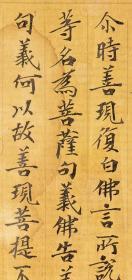 尒時善現復白佛言所說
等名為菩薩句義佛告善
句義何以故善現菩提不